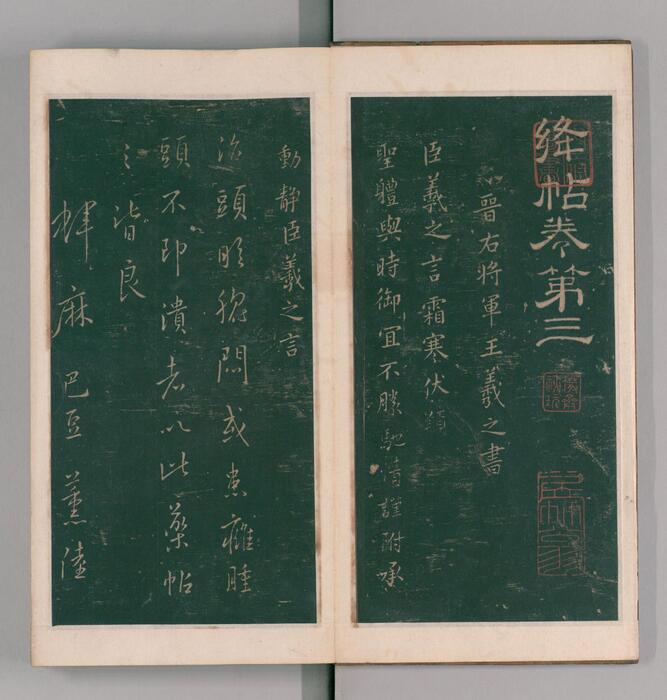 絳帖卷第三
晉右將軍王羲之書
臣羲之言霜寒伏願
聖體與時御宜不勝馳情謹附承
動靜臣羲之言
治頭眩脫悶或患癰腫
頭不即潰者以此藥帖
之皆良
麻 巴豆 薰陸